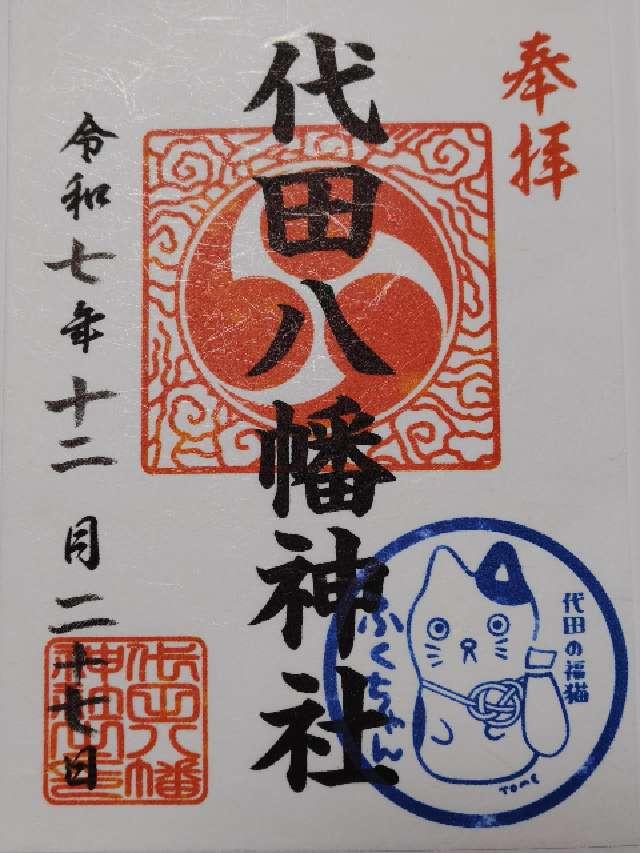 奉拝
代田八幡神社
令和七年十二月二十七日
代田の福猫
ふくちゃん
TOMO
代田八幡